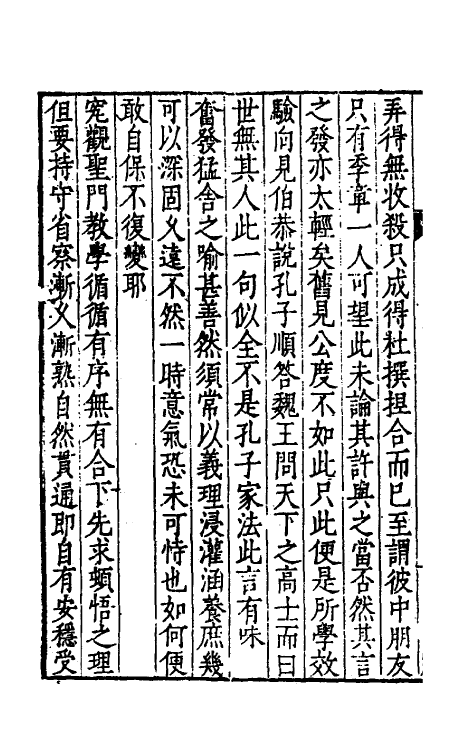 弄得無收殺只成得杜撰捏合而已至謂彼中朋友
只有季章一人可望此未論其許與之當否然其言
之發亦太輕矣舊見公度不如此只此便是所學效
驗向見伯恭說孔子順答魏王問天下之高士而曰
世無其人此一句似全不是孔子家法此言有味
奮發猛舍之喻甚善然須常以義理浸灌涵養庶幾
可以深固久遠不然一時意氣恐未可恃也如何便
敢自保不復變耶
究觀聖門教學循循有序無有合下先求頓悟之理
但要持守省察漸久漸熟自然貫通即自有安穩受